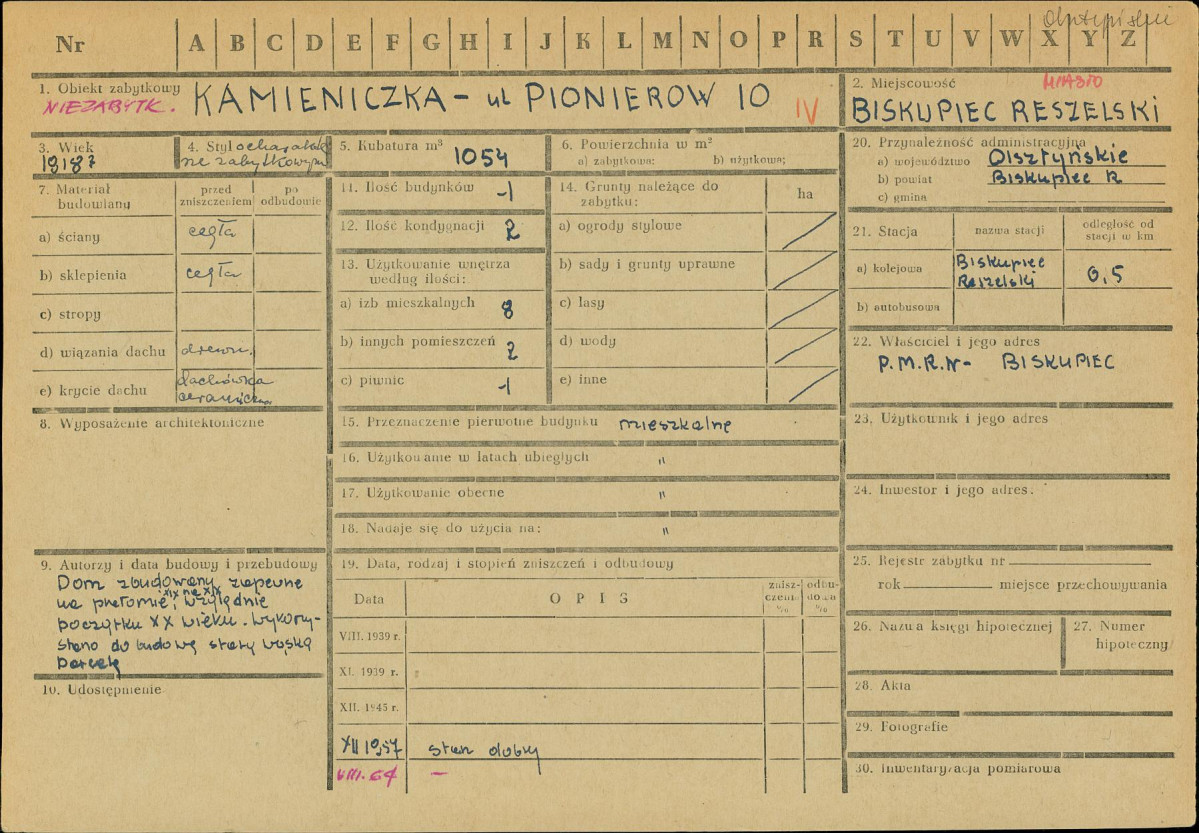 Nr A B C D E F G H I J K L M N O P R S T U V W X Y Z
1. Obiekt zabytkowy
NIEZABYTK.
KAMIENICZKA – ul PIONIERÓW 10
IV
2. Miejscowość
MIASTO
BISKUPIEC RESZELSKI
3. Wiek
4. Styl o charakt.
nie zabytkowym
5. Kubatura m³ 1054
6. Powierzchnia w m²
a) zabytkowa: b) użytkowa:
7. Materiał budowlany
przed zniszczeniem
po odbudowie
a) ściany cegła
b) sklepienia cegła
c) stropy
d) wiązania dachu drewn.
e) krycie dachu dachówka
ceramiczna
8. Wyposażenie architektoniczne
9. Autorzy i data budowy i przebudowy
Dom zbudowany zapewne
na przełomie, względnie
początku XX wieku. Wykorzy-
stano do budowy stary wąską
parcelę
10. Udostępnienie
11. Ilość budynków 1
12. Ilość kondygnacji 2
13. Użytkowanie wnętrza
według ilości:
a) izb mieszkalnych 8
b) innych pomieszczeń 2
c) piwnic 1
14. Grunty należące do
zabytku:
ha
a) ogrody stylowe
b) sady i grunty uprawne
c) lasy
d) wody
e) inne
15. Przeznaczenie pierwotne budynku mieszkalne
16. Użytkowanie w latach ubiegłych "
17. Użytkowanie obecne "
18. Nadaje się do użycia na: "
19. Data, rodzaj i stopień zniszczeń i odbudowy
Data
OPIS
znisz-
czenia
%
odbu-
dowa
%
VIII. 1939 r.
XI. 1939 r.
XII. 1945 r.
XII 1957 stan dobry
VIII. 64 –
20. Przynależność administracyjna
a) województwo Olsztyńskie
b) powiat Biskupiec R
c) gmina
21. Stacja
nazwa stacji
odległość od
stacji w km
a) kolejowa Biskupiec
Reszelski
0,5
b) autobusowa
22. Właściciel i jego adres
P.M.R.N- BISKUPIEC
23. Użytkownik i jego adres
24. Inwestor i jego adres:
25. Rejestr zabytku nr
rok miejsce przechowywania
26. Nazwa księgi hipotecznej
27. Numer
hipoteczny
28. Akta
29. Fotografie
30. Inwentaryzacja pomiarowa